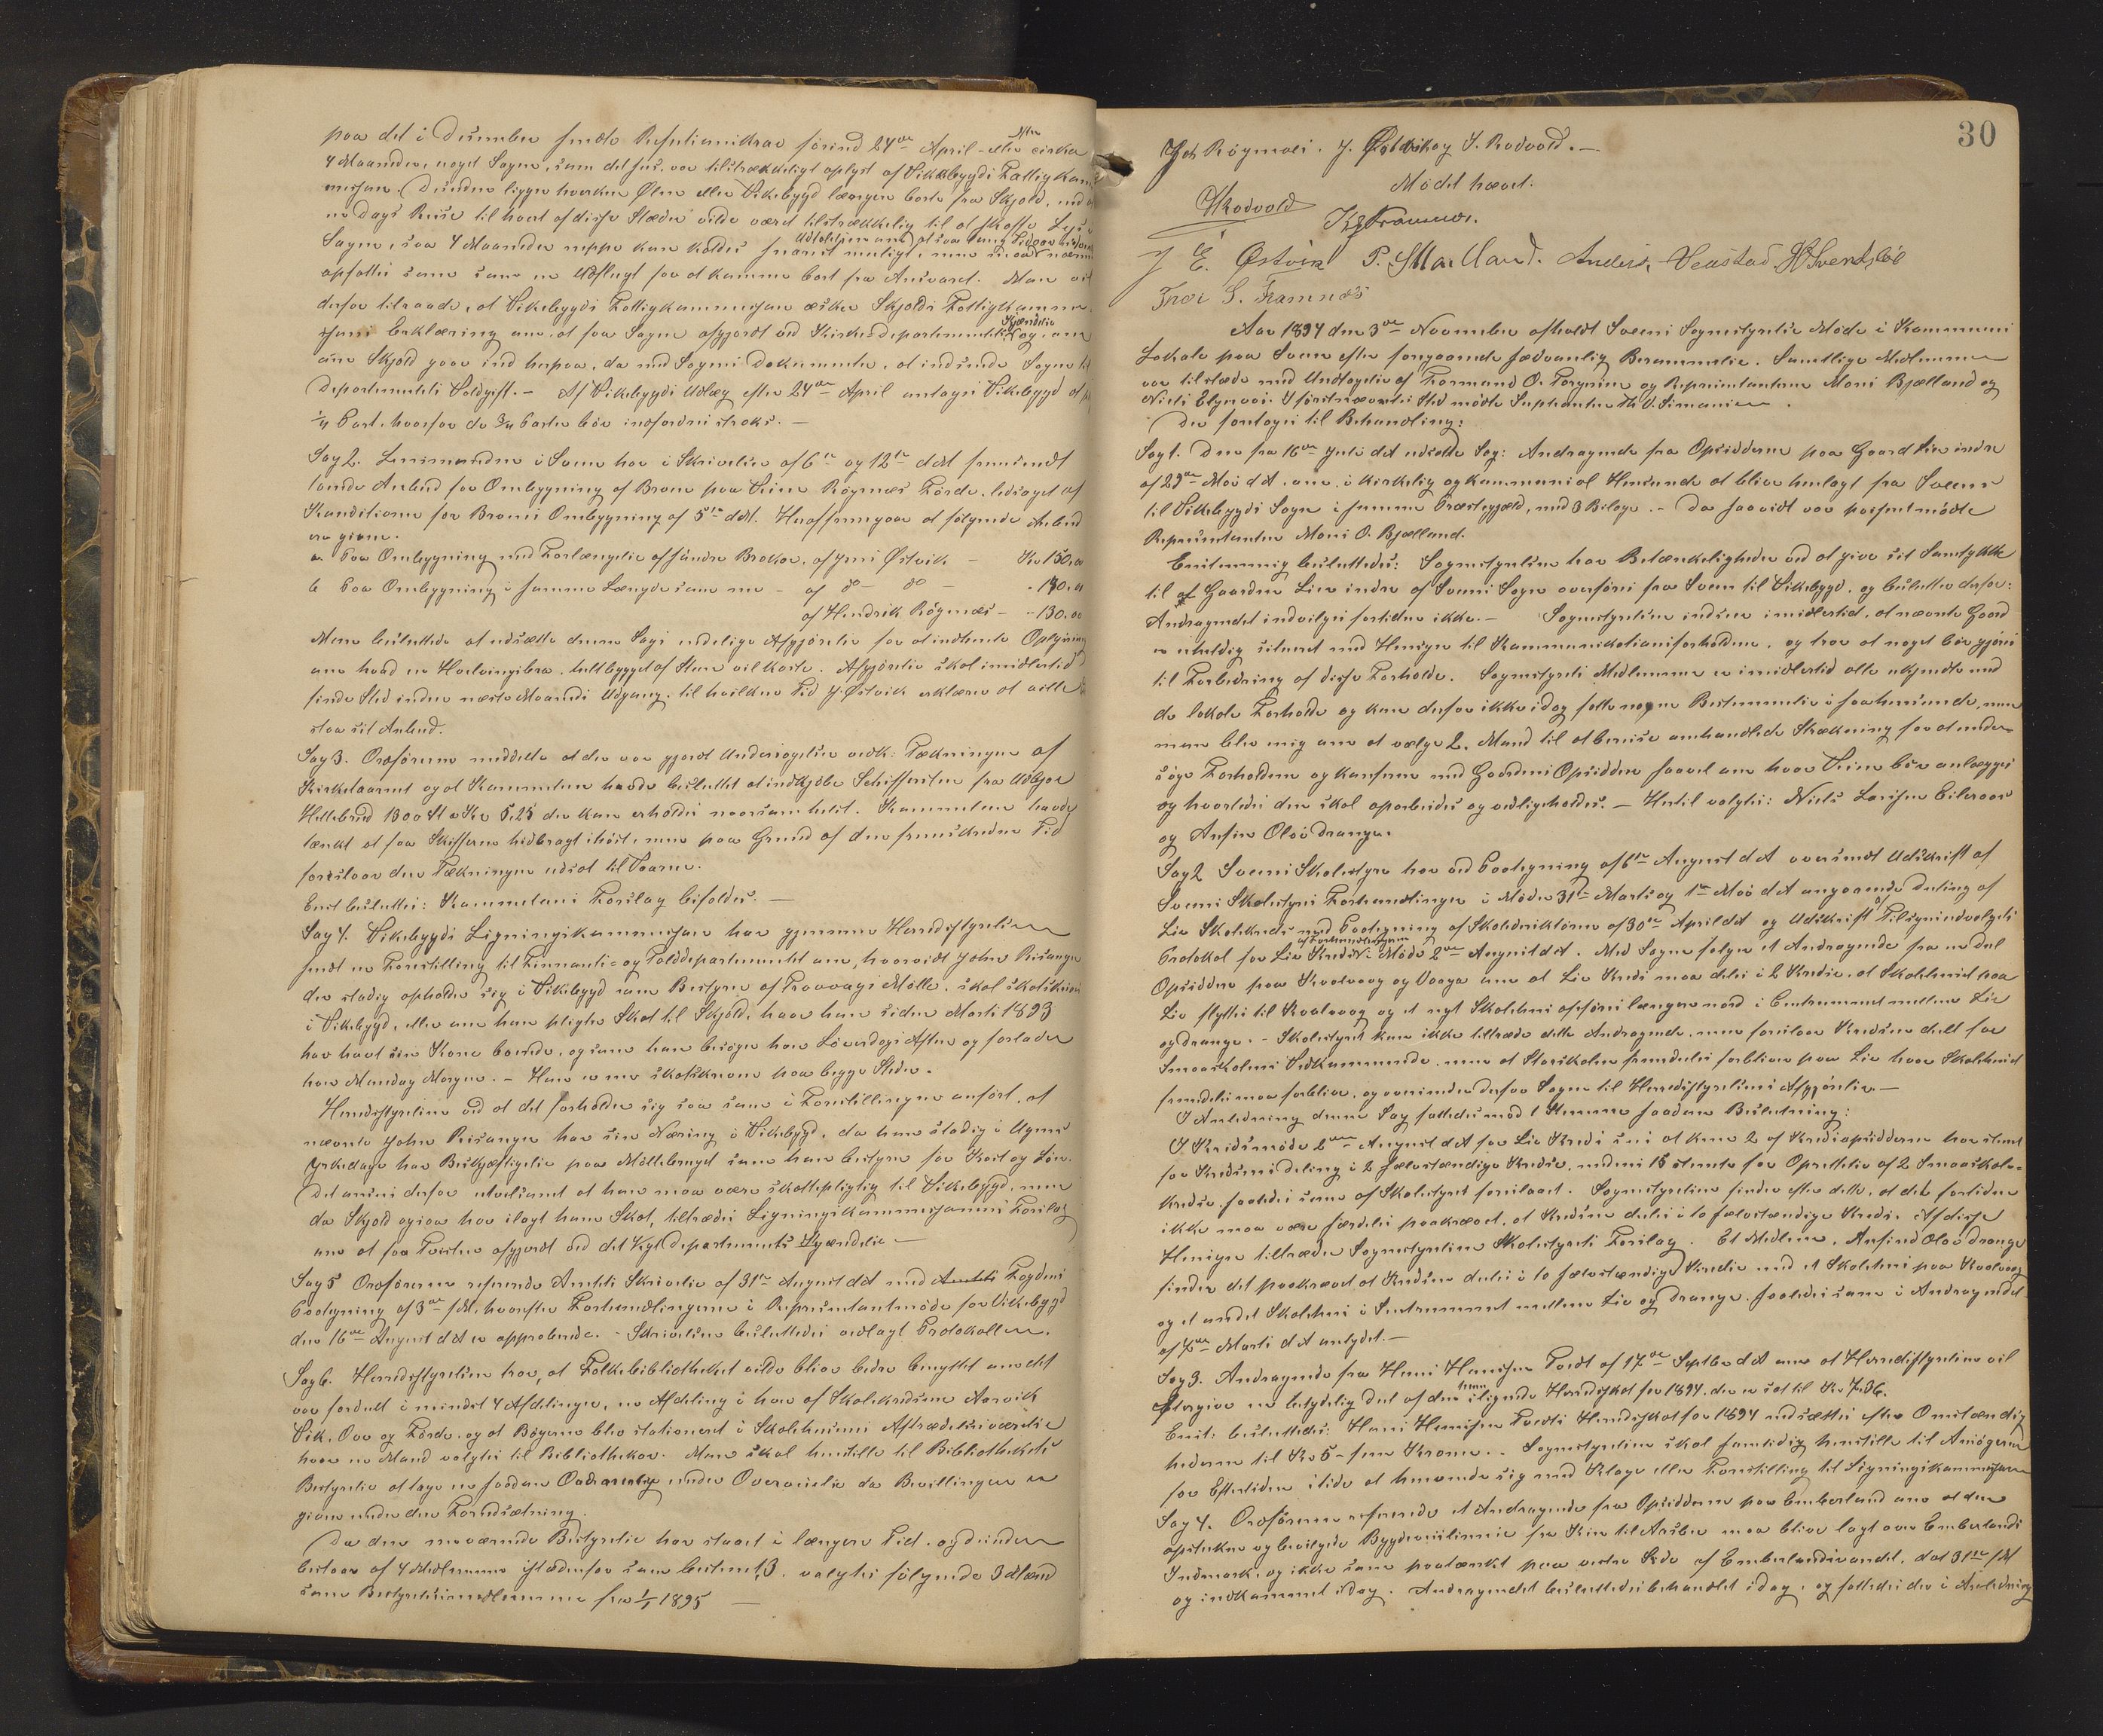 paa det i December sendte Refusionskrav förend 24de April – eller cirka
4 Maaneder, noget Sagen, som det sees, var tilstrækkeligt oplyst af Vikebygds Fattigkom
mission. Desuden ligger hverken Ølen eller Vikebygd længere borte fra Skjold, end
en Dags Reise til hvert af disse Steder vilde været tilstrækkelig til at skaffe Lys i
Sagen, saa 4 Maaneder neppe kan kaldes snarest muligt, men
opfattes som en Udflugt for at komme bort fra Ansvaret. Man vil
derfor tilraade, at Vikebygds Fattigkommission æsker Skjolds Fattigkommis
sions Erklæring om at faa Sagen afgjort ved Kirkedepartementets Kjendelse og, om
Skjold gaar ind herpaa, da med Sagens Dokumenter, at indsende Sagen til
Departementets Voldgift. – Af Vikebygds Udlæg efter 24de April antages Vikebygd at
1/4 Part, hvorfor de 3/4 Parter bör indfordres straks. –
Sag 2. Lensmanden i Sveen har i Skrivelser af 6te og 12te ds fremsendt
Anbud for Ombygning af Broen paa Veien Røgnæs Förde, ledsaget af
Konditioner for Broens Ombygning af 5te dM. Heraf fremgaar at fölgende Anbud
ere givne.
a Paa Ombygning med Forlængelse af söndre Brokar, af Jens Østvik – Kr 150,00
b Paa Ombygning i samme Længde som nu – af do – do – - 140,00
af Hendrik Rögnæs – - 130,00
Man besluttede at udsætte denne Sags endelige Afgjörelse for at indhente Oplysning
om hvad en Hvelvingsbro, helt bygget af Sten vil koste. Afgjörelse skal imidlertid
finde Sted inden næste Maaneds Udgang, til hvilken Tid J. Østvik erklærer at ville
staa sit Anbud.
Sag 3. Ordföreren meddelte at der var gjort Undersøgelser vedk. Tækningen af
Kirketaarnet og at Kommiteen havde besluttet at indkjöbe Skiffersten fra
1300 St a Kr 5,25 der kan erholdes naarsomhelst. Kommiteen havde
tænkt at faa Skifferen hidbragt ihöst, men paa Grund af den fremskredne Tid
foreslaar den Tækningen udsat til Vaaren.
Enst besluttes: Kommiteens Forslag bifaldes. –
Sag 4. Vikebygds Ligningskommission har gjennem Herredsstyrelsen
sendt en Forestilling til Finants- og Tolddepartementet om, hvorvidt John Risanger
der stadig opholder sig i Vikebygd som Bestyrer af Mölle, skal skatskrives
i Vikebygd, eller om han pligter Skat til Skjold, hvor han siden Marts 1893
har havt sin Kone boende, og som han besöger hver Löverdags Aften og forlader
hver Mandag Morgen. – Han er nu skatskreven paa begge Steder.
Herredsstyrelsen ved at det forholder sig saa som i Forestillingen anfört, at
nævnte John Risanger har sin Næring i Vikebygd, da han stadig i Ugens
Yrkedage har Beskjæftigelse paa Möllebruget som han bestyrer for Kost og Lön.
Det ansees derfor utvilsomt at han maa være skattepligtig til Vikebygd, men
da Skjold ogsaa har ilagt ham Skat, tiltrædes Ligningskommissionens Forslag
om at faa Tvisten afgjordt ved det Kgl. Departements Kjendelse –
Sag 5 Ordföreren refererede Amtets Skrivelse af 31te August dA med Fogdens
Paategning af 3de sM, hvorefter Forhandlingerne i Repræsentantmöde for Vikebygd
den 16de August dA er approberede. – Skrivelsen besluttedes vedlagt Protokollen.
Sag 6. Herredsstyrelsen tror, at Folkebibliotheket vilde blive bedre benyttet om det
var fordelt i mindst 4 Afdelinger, en Afdeling i hver af Skolekredsene
Vik, Oer og Förde, og at Bögerne blev stationeret i Skolehusene
hvor en Mand vælges til Bibliothekar. Man skal henstille til Bibliothekets
Bestyrelse at tage en saadan Ordning under Overveielse da Bevillingen er
given under den Forudsætning.
Da den nuværende Bestyrelse har staaet i længere Tid, og desuden
bestaar af 4 Medlemmer istedenfor som bestemt, 3, valgtes fölgende 3 Mænd
som Bestyrelsesmedlemmer fra 1/1 1895 –
30
Rögnæs. J. Østvik og J. Rødvold. –
Mödet hævet.
HRodvold
KGFramnæs.
J E. Østvik P. S Mælland. Anders Veastad HSvendsböe
Thor S. Framnæs
Aar 1894 den 3de November afholdt Sveens Sognestyrelse Möde i Kommunens
Lokale paa Sveen efter forgaaende sædvanlig Berammelse. Samtlige Medlemmer
var tilstede med Undtagelse af Formand O. Torgersen og Repræsentanterne Mons Bjælland og
Niels Elgevoi. I förstnævntes Sted mödte Suppleanten Th V. Simonsen.
Der foretoges til Behandling:
Sag 1. Den fra 16de Juli dA udsatte Sag: Andragende fra Opsidderne paa Gaard Lier indre
af 29de Mai dA, om i kirkelig og kommunal Henseende at blive henlagt fra Sveens
til Vikebygds Sogn i samme Præstegjæld, med 3 Bilage. – Da saavidt var passeret mödte
Repræsentanten Mons O. Bjælland.
Enstemmig besluttedes: Sognestyrelsen har Betænkeligheder ved at give sit Samtykke
til at Gaarden Lier indre af Sveens Sogn overföres fra Sveen til Vikebygd, og beslutter derfor:
Andragendet indvilges fortiden ikke. – Sognestyrelsen indser imidlertid, at nævnte Gaard
er uheldig situeret med Hensyn til Kommunikationsforholdene, og tror at noget bör gjöres
til Forbedring af disse Forholde. Sognestyrets Medlemmer er imidlertid alle ukjendte med
de lokale Forholde og kan derfor ikke idag fatte nogen Bestemmelse i saa henseende, men
man blev enig om at vælge 2 Mand til at bereise omhandlede Strækning for at under-
söge Forholdene og konferere med Gaardens Opsiddere saavel om hvor Veien bör anlægges
og hvorledes den skal oparbeides og vedligeholdes. – Hertil valgtes: Niels Larsen Eileraas
og Anfin Olsö Drange.
Sag 2 Sveens Skolestyre har ved Paategning af 6te August dA oversendt Udskrift af
Sveens Skolestyres Forhandlinger i Möder 31te Marts og 1ste Mai dA angaaende Deling af
Lie Skolekreds med Paategning af Skoledirektören af 30te April dA og Udskrift af Tilsynsudvalgets
Protokol for Lie Kreds' Möde 2den August dA. Med Sagen fölger et Andragende fra en Del
Opsiddere paa Kvalvaag og Vaage om at Lie Kreds maa deles i 2 Kredse, at Skolehuset paa
Lie flyttes til Kvalvaag og et nyt Skolehus opföres længere nord i Centrummet mellem Lie
og Drange. – Skolestyret kan ikke tiltræde dette Andragende, men foreslaar Kredsen delt for
Smaaskolens Vedkommende, men at Storskolen fremdeles forbliver paa Lie hvor Skolehuset
fremdeles maa forblive, og oversender derfor Sagen til Herredsstyrelsens Afgjörelse –
I Anledning denne Sag fattedes mod 1 Stemme saadan Beslutning:
I Kredsmöde 2den August dA for Lie Kreds sees at kun 2 af Kredsopsidderne har stemt
for Kredsens Deling i 2 selvstændige Kredse, medens 15 stemte for Oprettelse af 2 Smaaskole-
kredse, saaledes som af Skolestyret foreslaaet. Sognestyrelsen finder efter dette, at det fortiden
ikke maa være særdeles paakrævet, at Kredsen deles i to selvstændige Kredse. Af disse
Hensyn tiltræder Sognestyrelsen Skolestyrets Forslag. Et Medlem, Anfind Olsö Drange
finder det paakrævet at Kredsen deles i to selvstændige Kredse med et Skolehus paa Kvalvaag
og et andet Skolehus i Centrummet mellem Lie og Drange, saaledes som i Andragendet
af 7de Marts dA antydet. –
Sag 3. Andragende fra Hans Hansen Tveit af 17de Septbr dA om at Herredsstyrelsen vil
eftergive en betydelig Del af den ham ilignede Herredsskat for 1894, der er sat til Kr 7,36.
Enst. besluttedes: Hans Hansen Tveits Herredsskat for 1894 nedsættes efter Omstændig
hederne til Kr 5 – fem Kroner. – Sognestyrelsen skal samtidig henstille til Ansögeren
for Eftertiden itide at henvende sig med Klage eller Forestilling til Ligningskommissionen
Sag 4. Ordföreren refererede et Andragende fra Opsidderne paa Emberland om at den
opstukne og bevilgede Bygdeveilinie fra Kin til Aasbu maa blive lagt over Emberlands
Indmark, og ikke som paatænkt paa vestre Side af Emberlandsvandet, dat 31te sM
og indkommet idag. Andragendet besluttedes behandlet idag, og fattedes der i Anledning